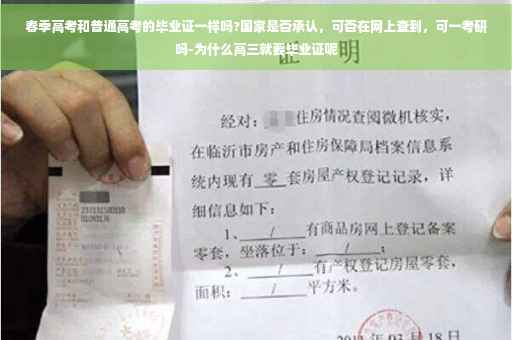 春季高考和普通高考的毕业证一样吗?国家是否承认，可否在网上查到，可一考研
吗-为什么高三就要毕业证呢
证 明
经对：住房情况查阅微机核实，
在临沂市房产和住房保障局档案信息系
统内现有 零 套房屋产权登记记录，详
细信息如下：
1、 / 有商品房网上登记备案
零套，坐落位于： / ；
2、 / 有产权登记房屋零套，
面积： / 平方米。
03月18日